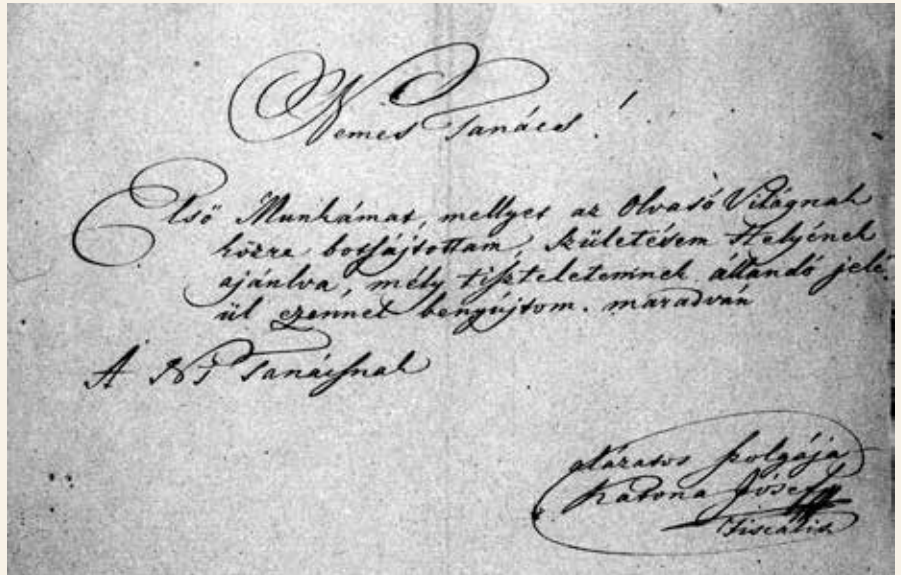 Nemes Tanács!
Első Munkámat, mellyet az Olvasó Világnak
közre botsájtottam, Születésem Helyének
ajánlva, mély tiszteletemnek állandó jelé-
ül ezennel benyújtom. maradván
A N T Tanácsnak
alázatos szolgája
Katona Jósef
Fiscális